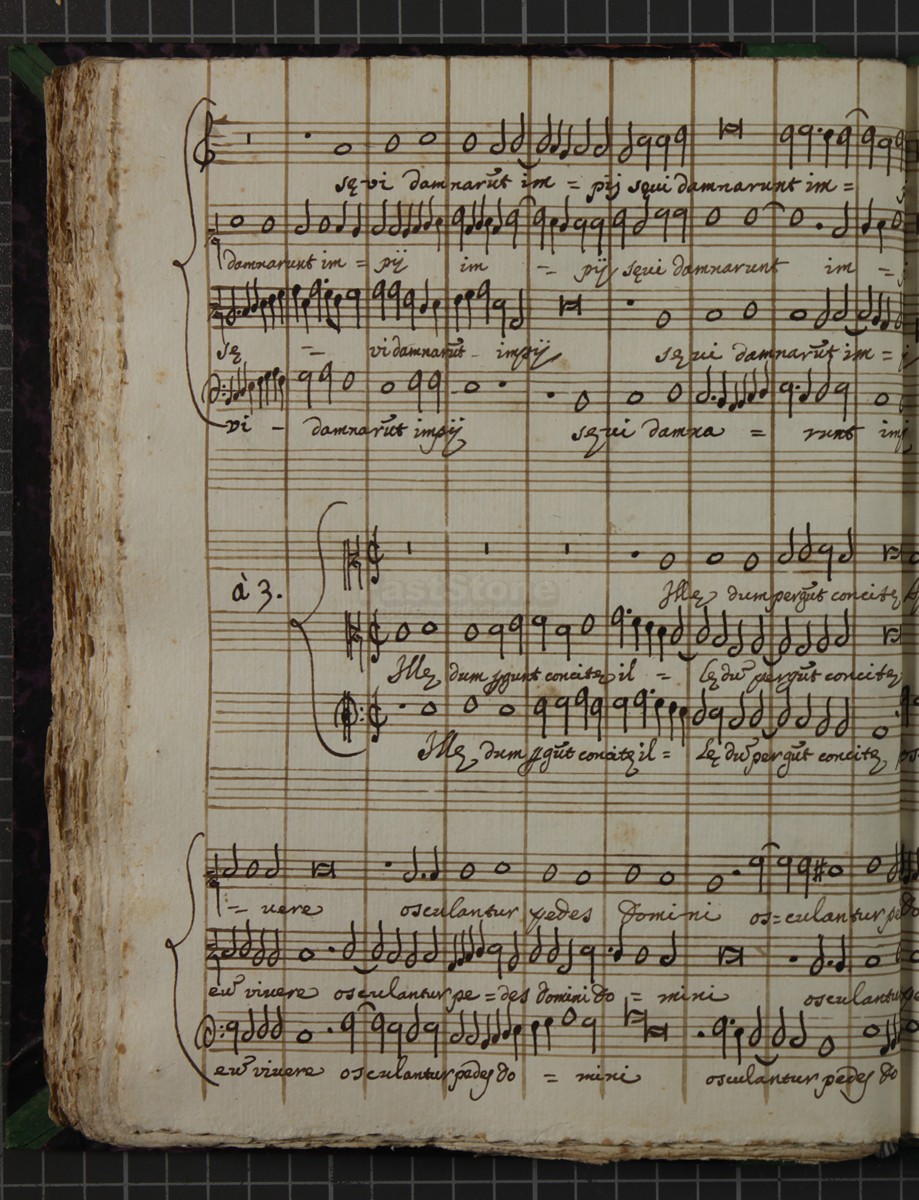 sęvi damnarūt im = pij sęvi damnarunt im =
damnarunt im = pij im = pij sęvi damnarunt im =
sę = vi damnarūt - impij sęvi damnarūt im =
vi - damnarūt impij sęvi damna = runt imp
à 3.
Illę dum pergūt concitę
Illę dum pgunt concitę il = lę dū pergūt concitę
Illę dum pgūt concitę il = lę dū pergūt concitę
= vere osculantur pedes Domini os=culantur
eū vivere osculantur pe = des domini do = mini osculantur
eū vivere osculantur pedes do = mini osculantur pedes do